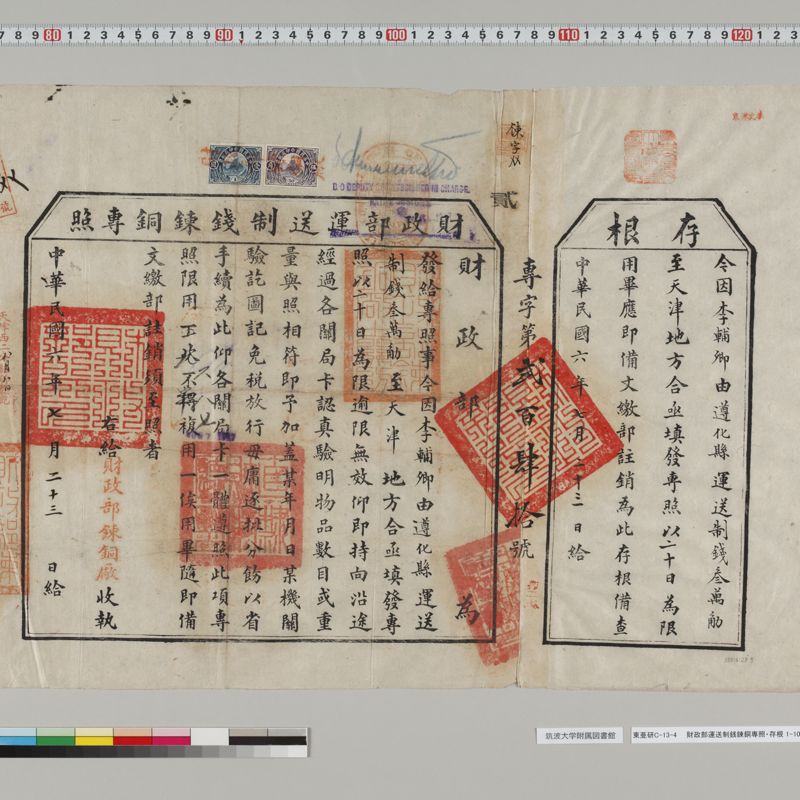 存根
今因李輔卿由遵化縣運送制錢叁萬觔
至天津地方合亟填發專照以二十日為限
用畢應即備文繳部註銷為此存根備查
中華民國六年七月二十三日給
專字第弍百肆拾號
貳
財政部運送制錢鍊銅專照
財政部為
發給專照事今因李輔卿由遵化縣運送
制錢叁萬觔至天津地方合亟填發專
照以二十日為限逾限無效仰即持向沿途
經過各關局卡認真驗明物品數目或重
量與照相符即予加蓋某年月日某機關
驗訖圖記免稅放行毋庸逐批分飭以省
手續為此仰各關局卡一體遵照此項專
照限用一次不得複用一俟用畢隨即備
文繳部註銷須至照者
右給財政部鍊銅廠收執
中華民國六年七月二十三日給
筑波大学附属図書館
東亜研C-13-4 財政部運送制銭錬銅専照・存根 1-10